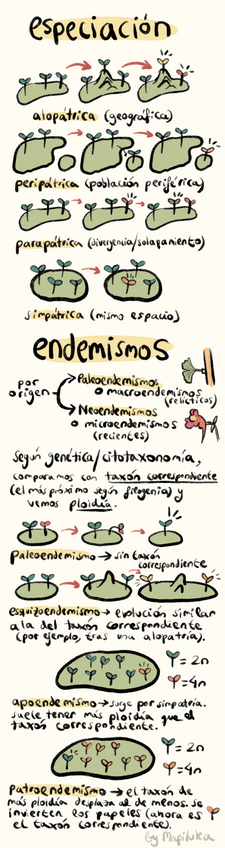 especiación
alopátrica (geográfica)
peripátrica (población periférica)
parapátrica (divergencia/solapamiento)
simpátrica (mismo espacio)
endemismos
por origen
Paleoendemismos
o macroendemismos
(relícticos)
Neoendemismos
o microendemismos
(recientes)
Según genética/citotaxonomía,
comparamos con taxón correspondiente
(el más próximo según filogenia) y
vemos ploidía.
Paleoendemismo → sin taxón
correspondiente
esquizoendemismo → evolución similar
a la del taxón correspondiente
(por ejemplo, tras una alopatría).
= 2n
= 4n
apoendemismo → surge por simpatría.
suele tener más ploidía que el
taxón correspondiente.
= 2n
= 4n
Patroendemismo → el taxón de
más ploidía desplaza al de menos. se
invierten los papeles (ahora es
el taxón correspondiente).